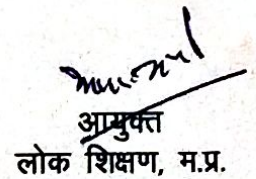 आयुक्त
लोक शिक्षण, म.प्र.